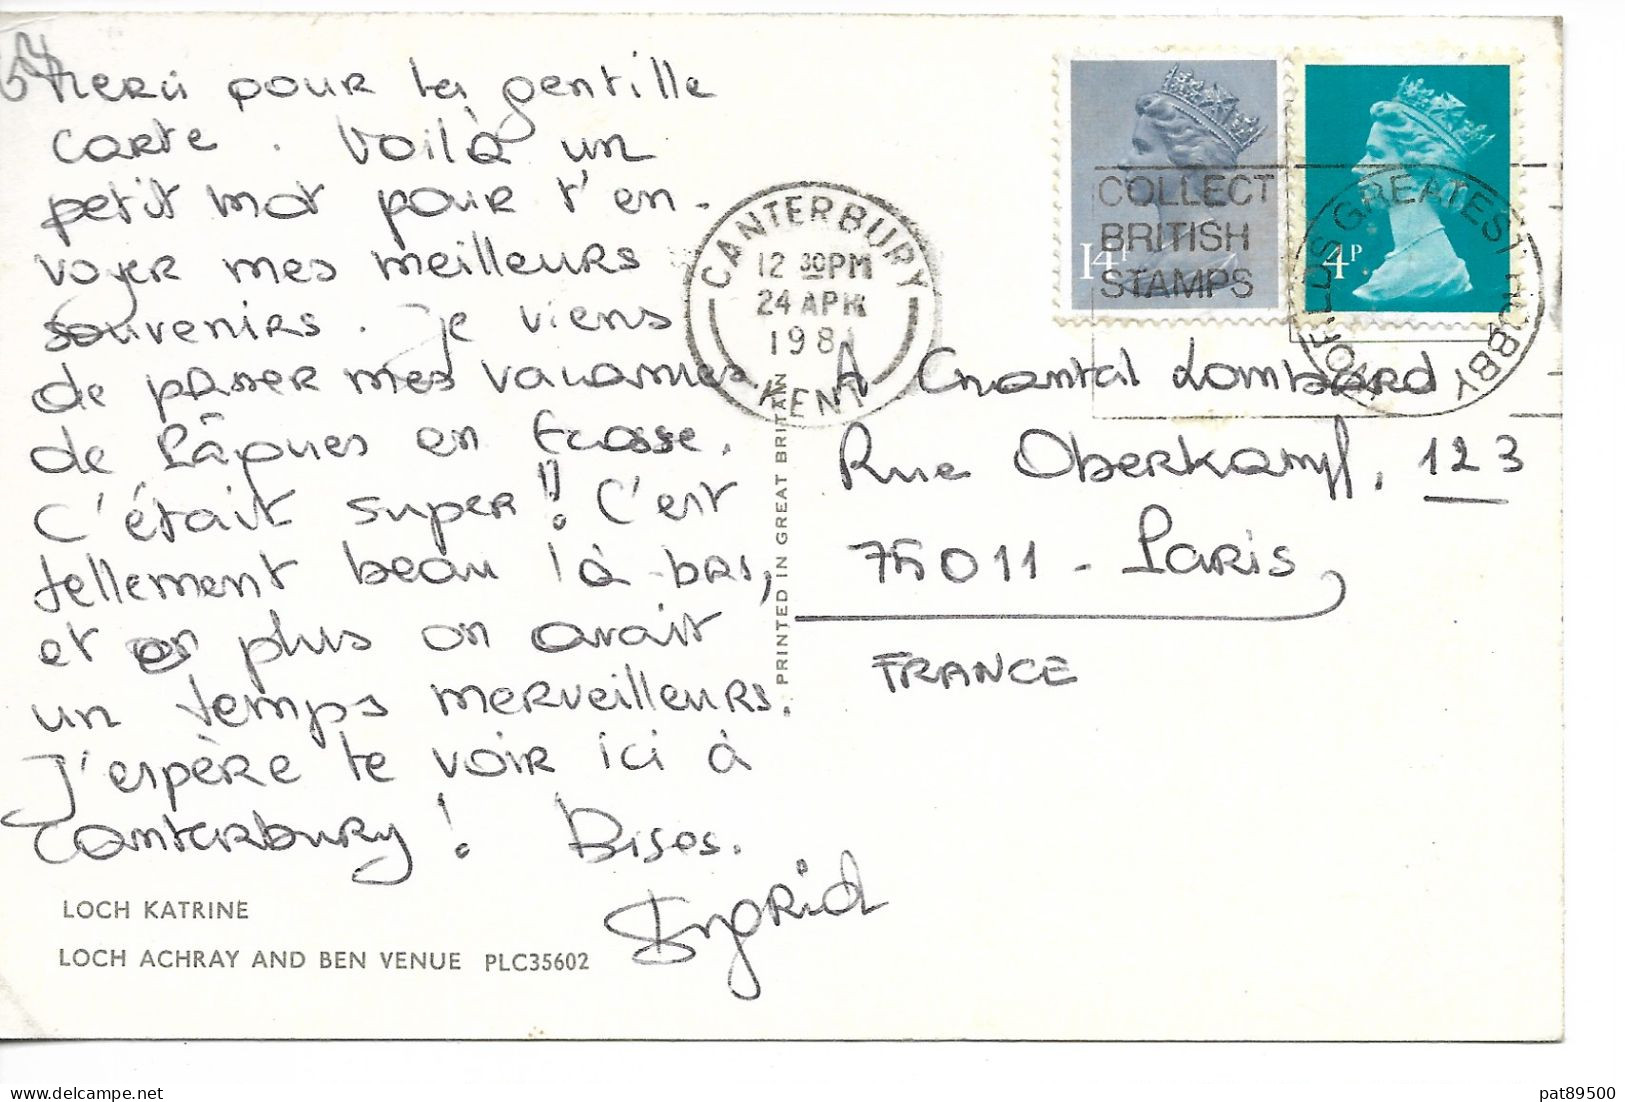 Merci pour ta gentille
carte. Voilà un
petit mot pour t'en-
voyer mes meilleurs
souvenirs. Je viens
de passer mes vacances
de Pâques en Ecosse.
C'était super!! C'est
tellement beau là-bas,
et en plus on avait
un temps merveilleurs.
J'espère te voir ici à
Canterbury! Bises.
Ingrid
LOCH KATRINE
LOCH ACHRAY AND BEN VENUE PLC35602
PRINTED IN GREAT BRITAIN
CANTERBURY
12 30PM
24 APR
198
KENT
14P
4P
COLLECT
BRITISH
STAMPS
WORLDS GREATEST HOBBY
A Chantal Lombard
Rue Oberkampf, 123
75011 - Paris
FRANCE
pat89500